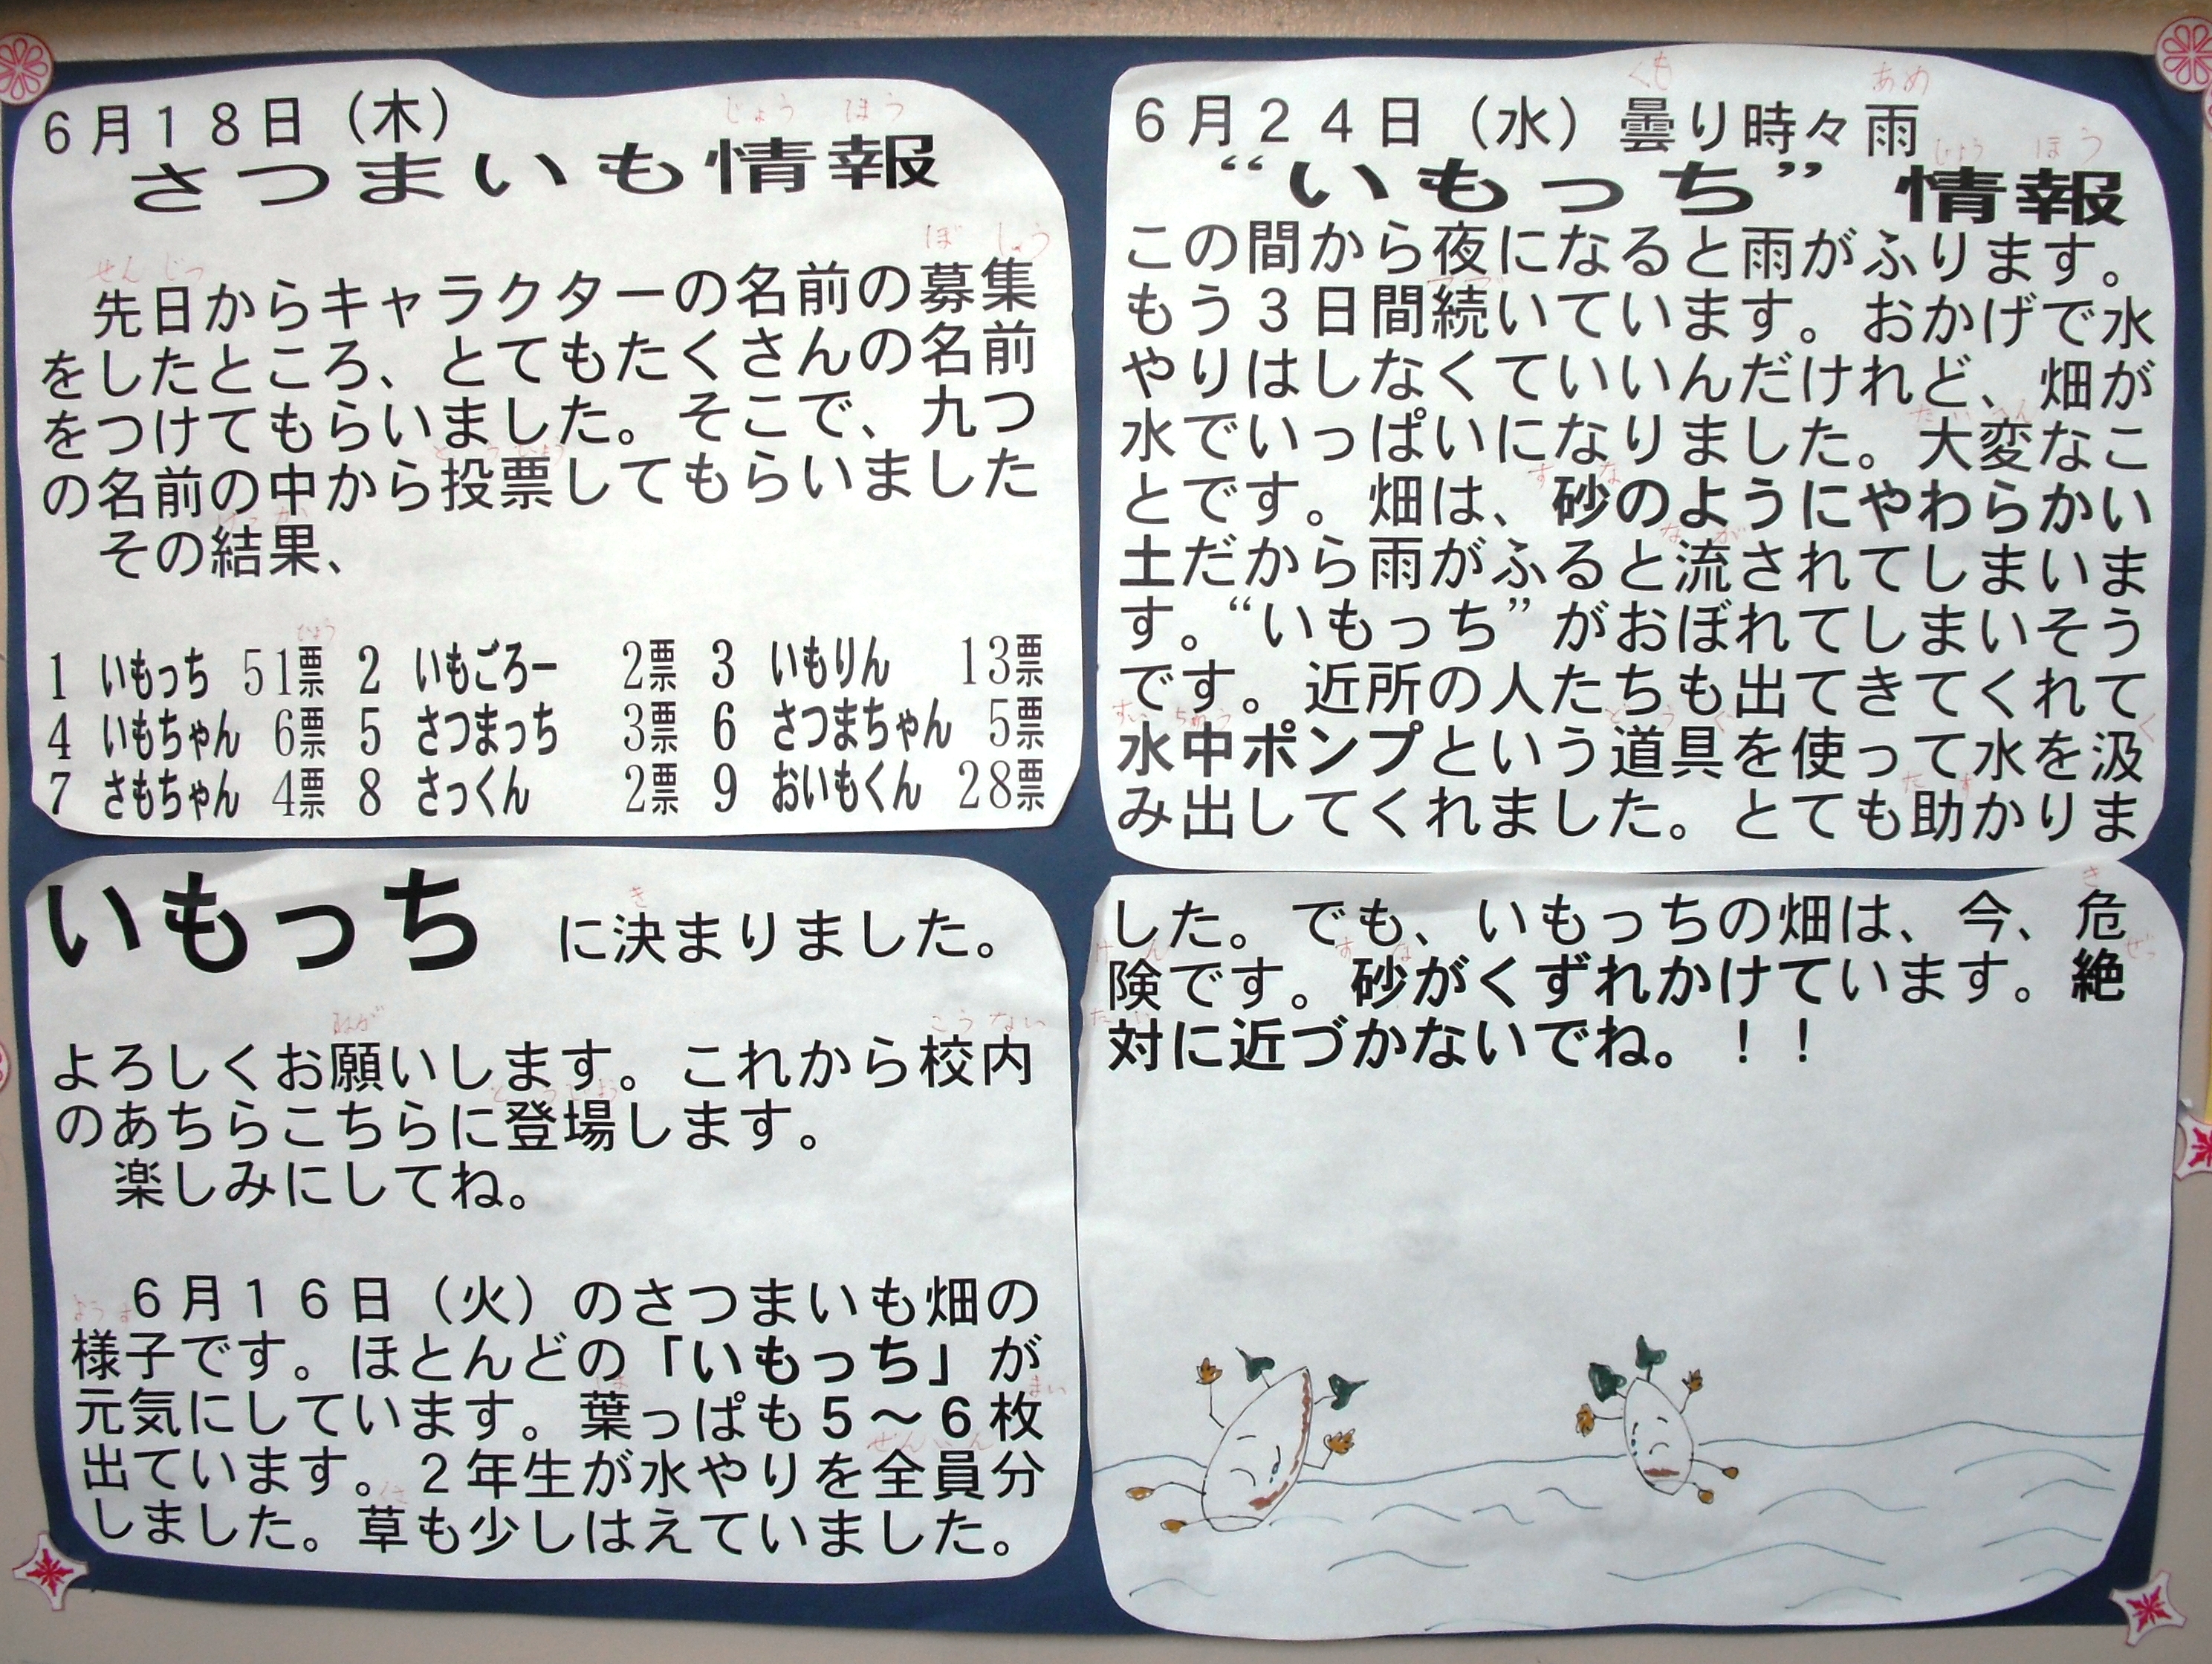 6月18日（木）
さつまいも情報
先日からキャラクターの名前の募集
をしたところ、とてもたくさんの名前
をつけてもらいました。そこで、九つ
の名前の中から投票してもらいました
その結果、
1 いもっち 51票 2 いもごろー 2票 3 いもりん 13票
4 いもちゃん 6票 5 さつまっち 3票 6 さつまちゃん 5票
7 さもちゃん 4票 8 さっくん 2票 9 おいもくん 28票
いもっち に決まりました。
よろしくお願いします。これから校内
のあちらこちらに登場します。
楽しみにしてね。
6月16日（火）のさつまいも畑の
様子です。ほとんどの「いもっち」が
元気にしています。葉っぱも5～6枚
出ています。2年生が水やりを全員分
しました。草も少しはえていました。
6月24日（水）曇り時々雨
“いもっち”情報
この間から夜になると雨がふります。
もう3日間続いています。おかげで水
やりはしなくていいんだけれど、畑が
水でいっぱいになりました。大変なこ
とです。畑は、砂のようにやわらかい
土だから雨がふると流されてしまいま
す。“いもっち”がおぼれてしまいそう
です。近所の人たちも出てきてくれて
水中ポンプという道具を使って水を汲
み出してくれました。とても助かりま
した。でも、いもっちの畑は、今、危
険です。砂がくずれかけています。絶
対に近づかないでね。！！